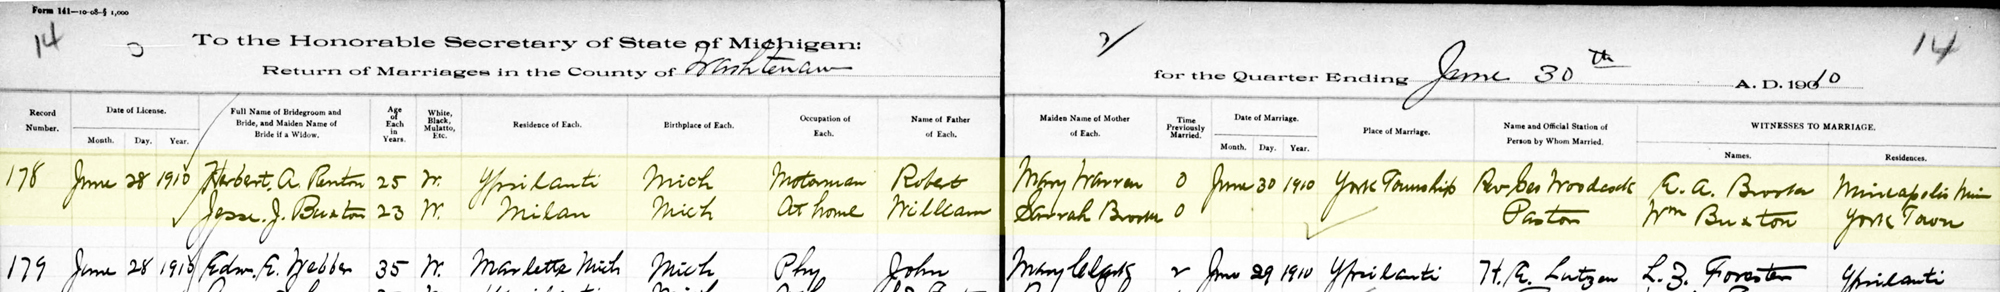 Form 141—10-08-§ 1,000
14
To the Honorable Secretary of State of Michigan:
Return of Marriages in the County of Washtenaw
14
for the Quarter Ending June 30th A. D. 1910
Record Number.
Date of License.
Month. Day. Year.
Full Name of Bridegroom and Bride, and Maiden Name of Bride if a Widow.
Age of Each in Years.
White, Black, Mulatto, Etc.
Residence of Each.
Birthplace of Each.
Occupation of Each.
Name of Father of Each.
Maiden Name of Mother of Each.
Time Previously Married.
Date of Marriage.
Month. Day. Year.
Place of Marriage.
Name and Official Station of Person by Whom Married.
WITNESSES TO MARRIAGE.
Names. Residences.
178 June 28 1910 Herbert. A. Renton 25 W. Ypsilanti Mich Motorman Robert Mary Warren 0 June 30 1910 York Township Rev. Jas Woodcock E. A. Brooks Mineapolis Min
Jesse. J. Buxton 23 W. Milan Mich At home William Sarrah Brooks 0 Pastor Wm Buxton York Town
179 June 28 1910 Edw. E. Webber 35 W. Marlette Mich Mich Phy John Mary Clark 2 June 29 1910 Ypsilanti H. E. Lutzen L. Z. Forester Ypsilanti